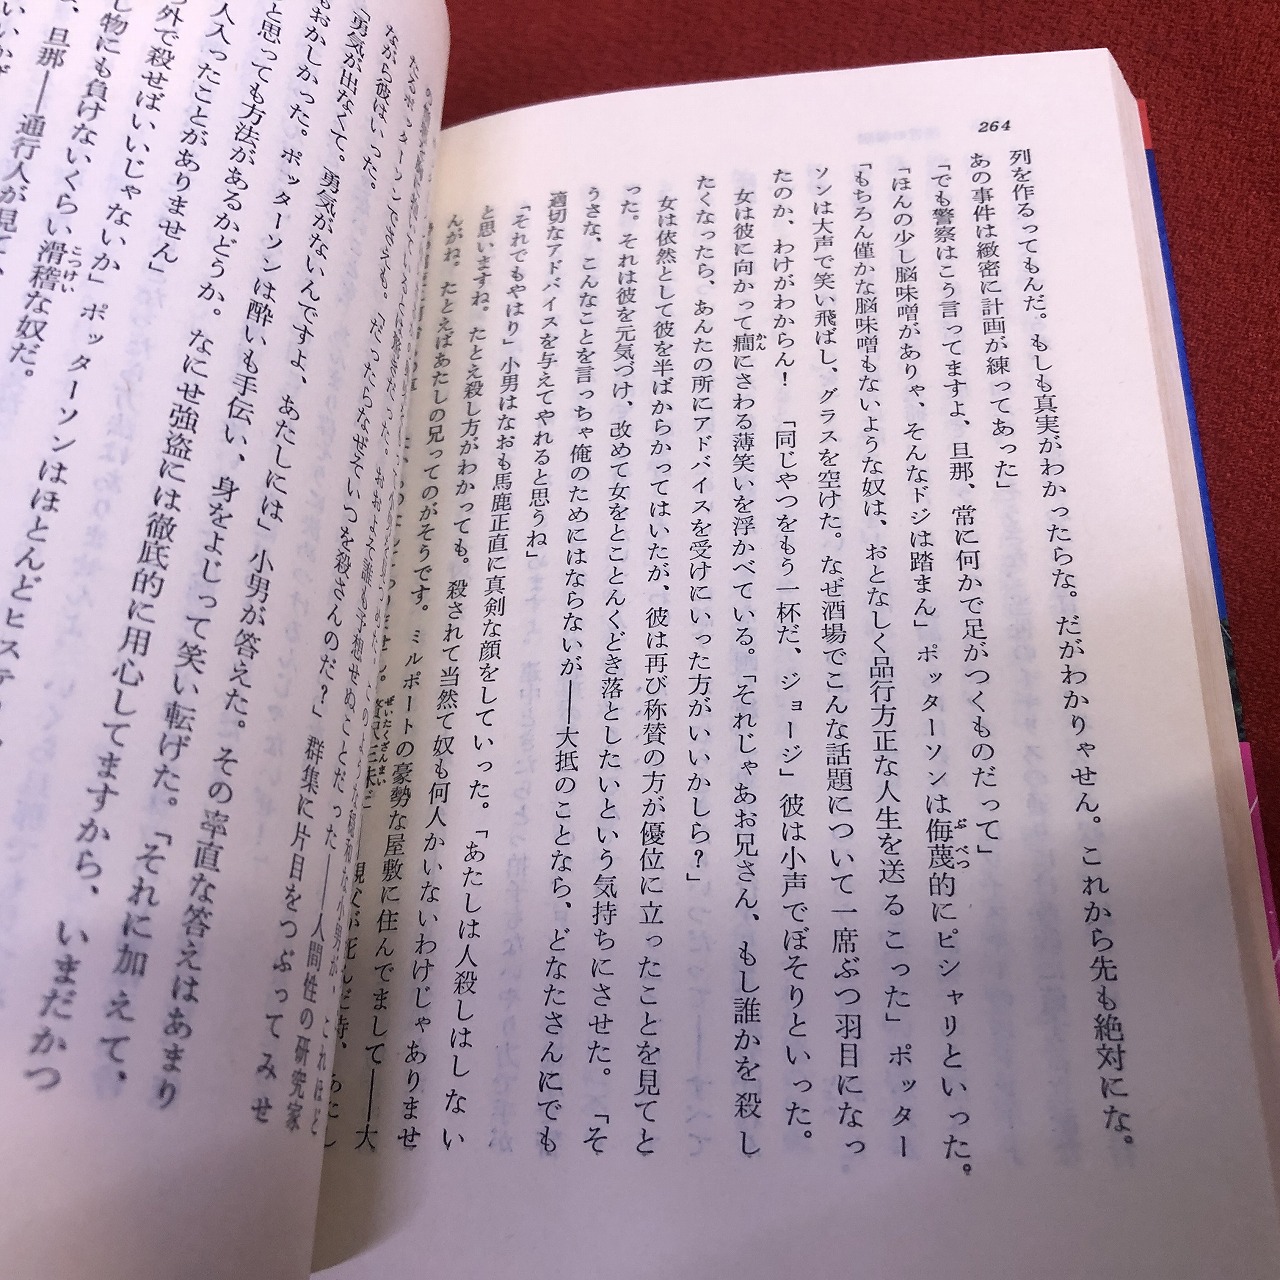 264
列を作るってもんだ。もしも真実がわかったらな。だがわかりゃせん。これから先も絶対にな。
あの事件は緻密に計画が練ってあった」
「でも警察はこう言ってますよ、旦那、常に何かで足がつくものだって」
「ほんの少し脳味噌がありゃ、そんなドジは踏まん」ポッターソンは侮蔑的にピシャリといった。
ぶべつ
「もちろん僅かな脳味噌もないような奴は、おとなしく品行方正な人生を送るこった」ポッター
ソンは大声で笑い飛ばし、グラスを空けた。なぜ酒場でこんな話題について一席ぶつ羽目になっ
たのか、わけがわからん！「同じやつをもう一杯だ、ジョージ」彼は小声でぼそりといった。
女は彼に向かって癇にさわる薄笑いを浮かべている。「それじゃあお兄さん、もし誰かを殺し
かん
たくなったら、あんたの所にアドバイスを受けにいった方がいいかしら？」
女は依然として彼を半ばからかってはいたが、彼は再び称賛の方が優位に立ったことを見てと
った。それは彼を元気づけ、改めて女をとことんくどき落としたいという気持ちにさせた。「そ
うさな、こんなことを言っちゃ俺のためにはならないが――大抵のことなら、どなたさんにでも
適切なアドバイスを与えてやれると思うね」
「それでもやはり」小男はなおも馬鹿正直に真剣な顔をしていった。「あたしは人殺しはしない
と思いますね。たとえ殺し方がわかっても。殺されて当然て奴も何人かいないわけじゃありませ
んがね。たとえばあたしの兄ってのがそうです。ミルポートの豪勢な屋敷に住んでまして――大
ぜいたくざんまい
ながら彼はいった。
「勇気が出なくて。勇気がないんですよ、あたしには」小男が答えた。その率直な答えはあまり
もおかしかった。ポッターソンは酔いも手伝い、身をよじって笑い転げた。「それに加えて、
と思っても方法があるかどうか。なにせ強盗には徹底的に用心してますから、いまだかつ
人入ったことがありません」
外で殺せばいいじゃないか」ポッターソンはほとんどヒステリ
し物にも負けないくらい滑稽な奴だ。
こっけい
、旦那――通行人が見て、